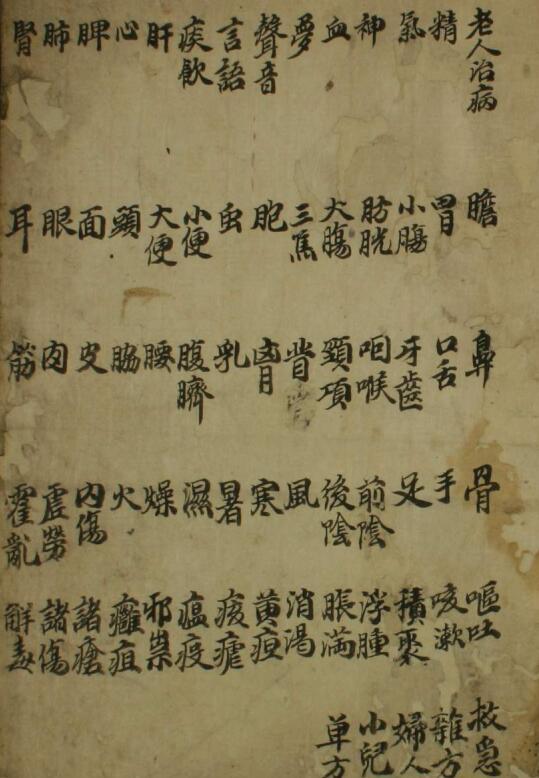 老人治病 精 氣 神 血 夢 聲音 言語 痰飮 肝 心 脾 肺 腎
膽 胃 小腸 肪胱 大腸 三焦 胞 虫 小便 大便 頭 面 眼 耳
鼻 口舌 牙齒 咽喉 頸項 背 胷 乳 腹臍 腰 脇 皮 肉 筋
骨 手 足 前陰 後陰 風 寒 暑 濕 燥 火 內傷 虛勞 霍亂
嘔吐 咳嗽 積聚 浮腫 脹滿 消渴 黃疸 痎瘧 瘟疫 邪祟 癰疽 諸瘡 諸傷 解毒
救急 雜方 婦人 小兒 单方